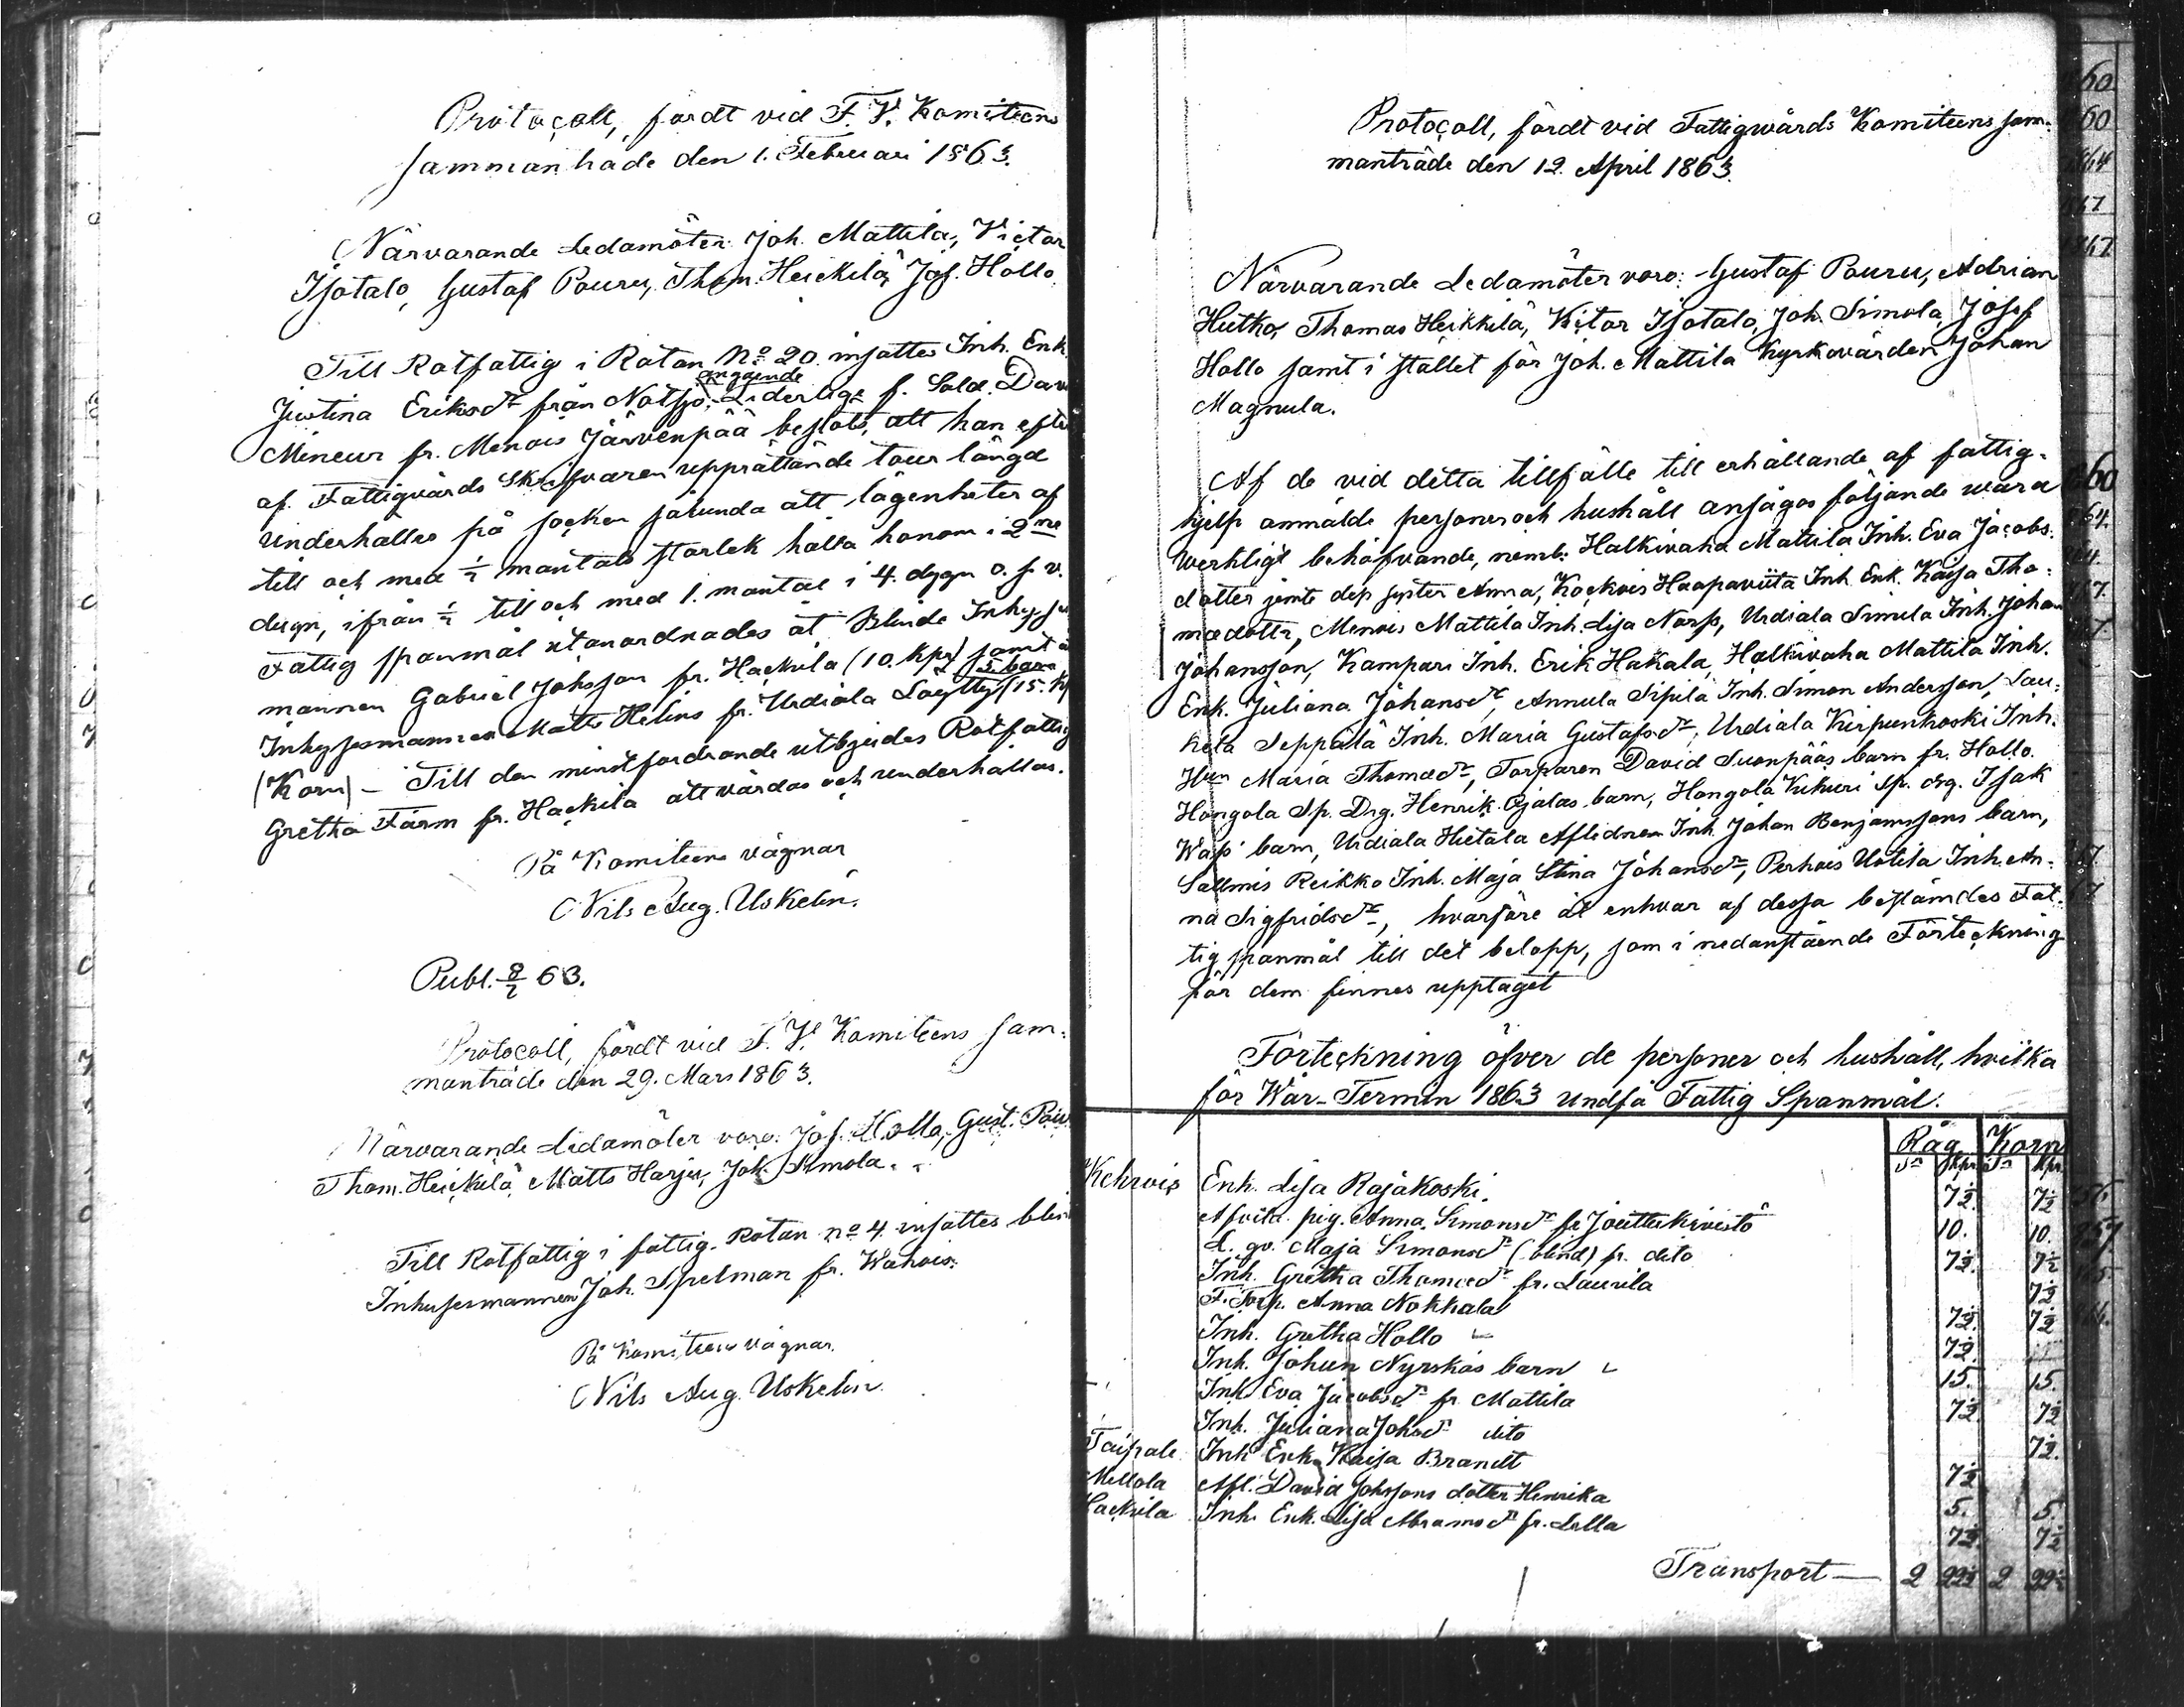 Protocoll, fördt vid F. V. Komiteens
sammanhade den 1. Februari 1863.
Närvarande Ledamöter: Joh. Mattila, Victor
Isotalo, Gustaf Pouru, Thom. Heickilä, Jos. Hollo.
Till Rotfattig i Rotan No 20. insattes Inh. Enk.
Justina Eriksdr från Notsjö. angående Liderlige f. Sold. Dav
Mineur fr. Menois Järvenpää beslöts, att han efter
af Fattigvårds Skrifvaren upprättande tour längd
underhålles på socken sålunda att lägenheter af
till och med ½ mantals storlek hålla honom i 2ne
dygn, ifrån ½ till och med 1. mantal i 4. dygn o. s. v.
Fattig spanmål utanordnades åt Blinde Inhyses
mannen Gabriel Johsson fr. Hackila (10. kpr) samt å
Inhysesmannen Matts Helins fr. Urdiala Löytty 3 barn (15. K
(Korn) – Till den minstfordrande utbjudes Rotfattig
Gretha Färm fr. Hackila att vårdas och underhållas.
På Komiteens vägnar
Nils Aug. Uskelin.
Publ. 8/2 63.
Protocoll, fördt vid F. V. Komiteens sam-
manträde den 29. Mars 1863.
Närvarande Ledamöter voro: Jos. Hollo, Gust. Pour
Thom. Heickilä, Matts Harju, Joh. Simola.
Till Rotfattig i fattig-Rotan no 4. insattes blin
Inhysesmannen Joh. Spelman fr. Wahois.
På Komiteens vägnar.
Nils Aug. Uskelin.
Protocoll, fördt vid Fattigwårds Komiteens sam-
manträde den 12. April 1863.
Närvarande Ledamöter voro: Gustaf Pouru, Adrian
Hutko, Thomas Heikkilä, Victor Isotalo, Joh. Simola, Josef
Hollo samt i stället för Joh. Mattila Kyrkovärden Johan
Magnula.
Af de vid detta tillfälle till erhållande af fattig-
hjelp anmälde personer och hushåll ansågos följande wara
werkligt behöfvande, nemb: Halkivaha Mattila Inh. Eva Jacobs-
dotter jemte dess syster Anna, Kockois Haapaviita Inh. Enk. Kaisa Tho-
mædotter, Menois Mattila Inh. Lisa Norss, Urdiala Simila Inh. Johan
Johansson, Kampari Inh. Erik Hakala, Halkivaha Mattila Inh.
Enk. Juliana Johansdr, Annula Sipilä Inh. Simon Andersson, Lau-
kela Seppälä Inh. Maria Gustafsdr, Urdiala Kirpunkoski Inh.
Hun Maria Thomædr, Torparen David Suonpääs barn fr. Hollo.
Hongola Sp. Drg. Henrik Ojalas barn, Hongola Kukuri Sp. drg. Isak
Wass' barn, Urdiala Hietala Aflidnen Inh. Johan Benjamssons barn,
Sallmis Reikko Inh. Maja Stina Johansdr, Perhois Uotila Inh. An-
na Sigfridsdr, hvarföre åt enhvar af dessa bestämdes Fat-
tig spanmål till det belopp, som i nedanstående Förteckning
för dem finnes upptaget
Förteckning öfver de personer och hushåll, hvilka
för Wår-Termin 1863 undfå Fattig Spanmål.
Råg Korn
Tn Kpr. Tn Kpr.
Kehrois Enk. Lisa Rajakoski. 7½ 7½
Afvita pig. Anna Simonsdr fr Joutturkivistö 10. 10.
L. qv. Maja Simonsdr (blind) fr. dito 7½ 7½
Inh. Gretha Thomædr fr. Laurila 7½
F. Torp. Anna Nokkala 7½ 7½
Inh. Gretha Hollo 7½
Inh. Johan Nyrskäs barn 15. 15.
Inh. Eva Jacobsdr fr. Mattila 7½ 7½
Inh. Juliana Johsdr dito 7½
Taipale Inh Enk. Kaisa Brandt 7½
Mellola Afl. David Johssons dotter Henrika 5. 5.
Hackila Inh. Enk. Lisa Abramsdr fr. Lella 7½ 7½
Transport — 2 22½ 2 22½